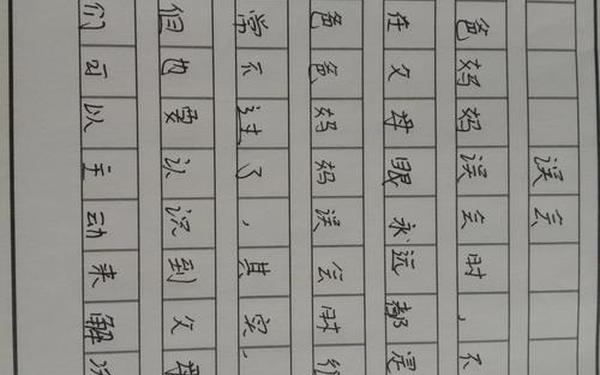 误会
爸妈妈误会时,不
在父母眼永远都是
爸爸妈妈误会时
常不过了,其实,
但也要认识到父母
们可以主动来解决